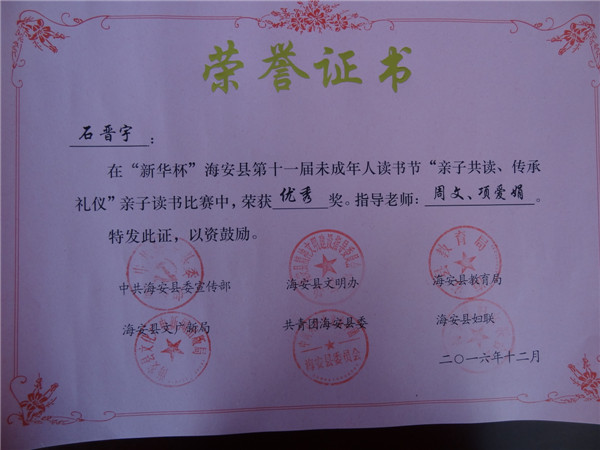 荣誉证书
石晋宇：
在“新华杯”海安县第十一届未成年人读书节“亲子共读、传承
礼仪”亲子读书比赛中，荣获优秀奖。指导老师：周文、项爱娟。
特发此证，以资鼓励。
中共海安县委宣传部 海安县文明办 海安县教育局
海安县文广新局 共青团海安县委 海安县妇联
二〇一六年十二月